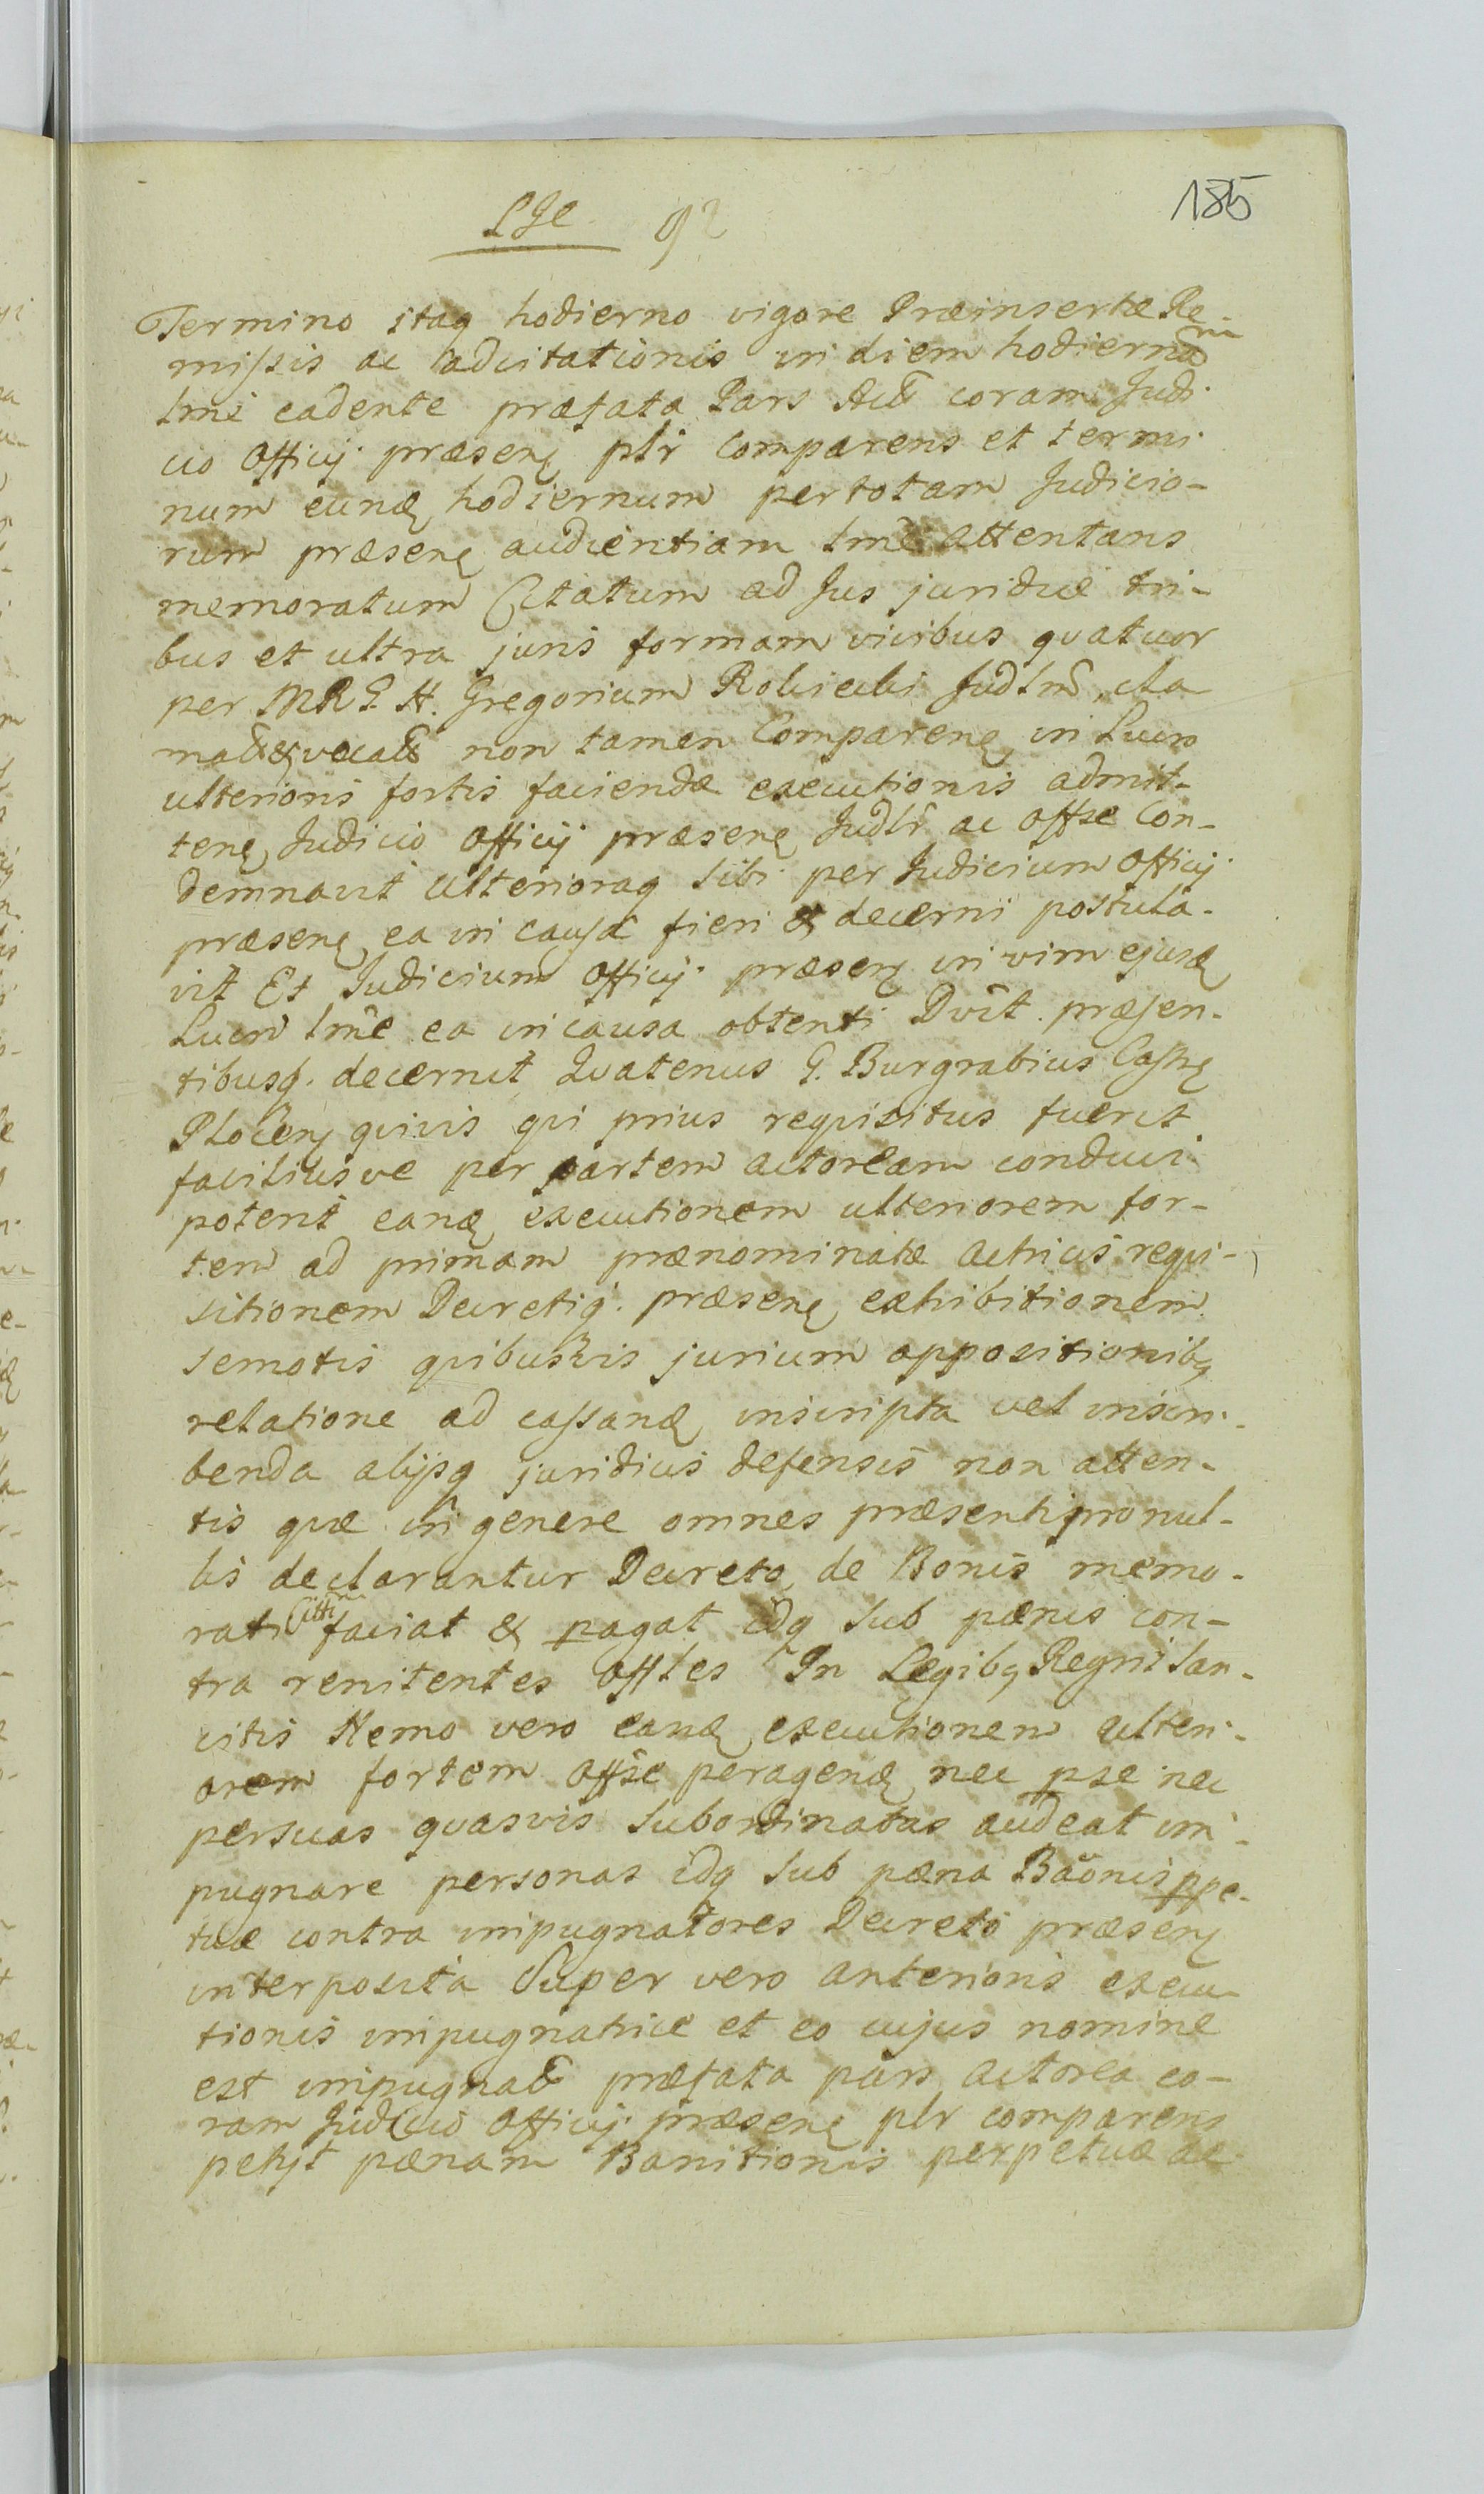 185
92
Termino itaq hodierno vigore Præinsertæ Re-
missis ac adcitationis in diem hodiernam
tmê cadente præfata Pars Act coram Judi
cio Officij præseñ plr comparens et termi
num eund hodiernum per totam Judicio-
rum præseñ audientiam tmê attentans
memoratum Citatum ad Jus juridicè tri-
bus et ultra juris formam vicibus quatuor
per MRG. H. Gregorium Judlm cla
mat & vocat non tamen Compareñ in Lucro
ulterioris fortis faciendæ executionis admit-
teñ Judicio Officij præseñ Judlr ac Offse Con-
demnavit ulterioraq sibi per Judicium Officij
præseñ ea in causa fieri & decerni postula-
vit Et Judicium Officij præseñ in vim ejusd
Lucri tmê ea in causa obtenti Dvit præsen-
tibusq. decernit Quatenus G. Burgrabius Casñ
Ploceñ quivis qui prius requisitus fuerit
faciliusve per partem actoream conduci
poterit eand executionem ulteriorem for-
tem ad primam prænominatæ actricis requi-
sitionem Decretiq. præseñ exhibitionem
semotis quibusvis jurium oppositionibq
relatione ad cassand inscripta vel inscri-
benda alijsq juridicis defensis non atten-
tis quæ in genere omnes præsenti pro nul-
lis declarantur Decreto de Bonis memo-
rati Citti faciat & pagat idq sub pænis con-
tra renitentes Offles In Legibq Regni san-
citis Nemo vero eand executionem ulteri-
orem fortem Offse peragend nec pse nec
per suas quasvis subordinatas audeat im-
pugnare personas idq sub pæna Bãonis ppe-
tuæ contra impugnatores Decreto præseñ
interposita Super vero anterioris execu-
tionis impugnatrice et eo cujus nomine
est impugnat præfata pars actorea co-
ram Judicio Officij præseñ plr comparens
petijt pænam Banitionis perpetuæ de